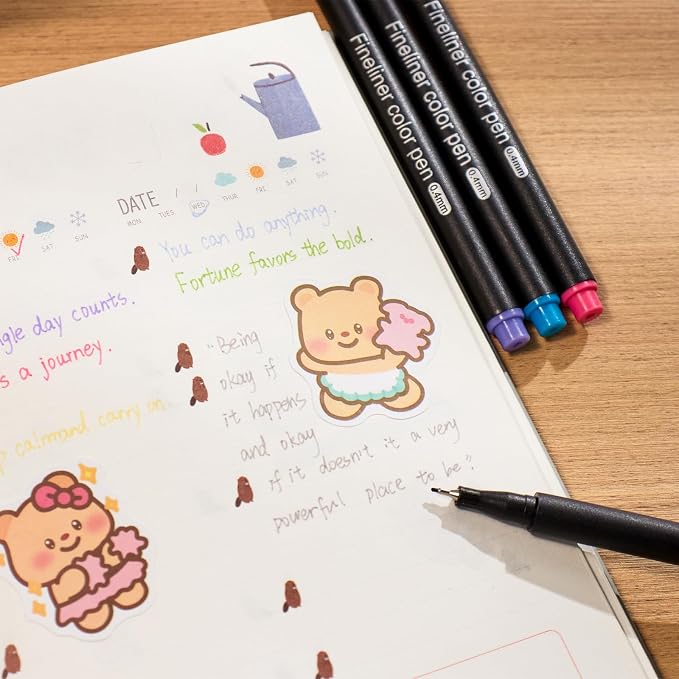 Fineliner color pen 0.4mm
Fineliner color pen 0.4mm
Fineliner color pen 0.4mm
FRI SAT SUN
DATE / /
MON TUES WED THUR FRI SAT SUN
You can do anything.
Fortune favors the bold.
day counts.
a journey.
calmand carry on
"Being
okay if
it happens
and okay
if it doesn't it a very
powerful place to be".